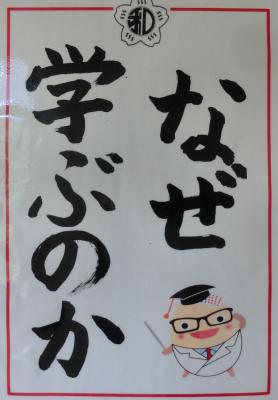 和
なぜ
学ぶのか